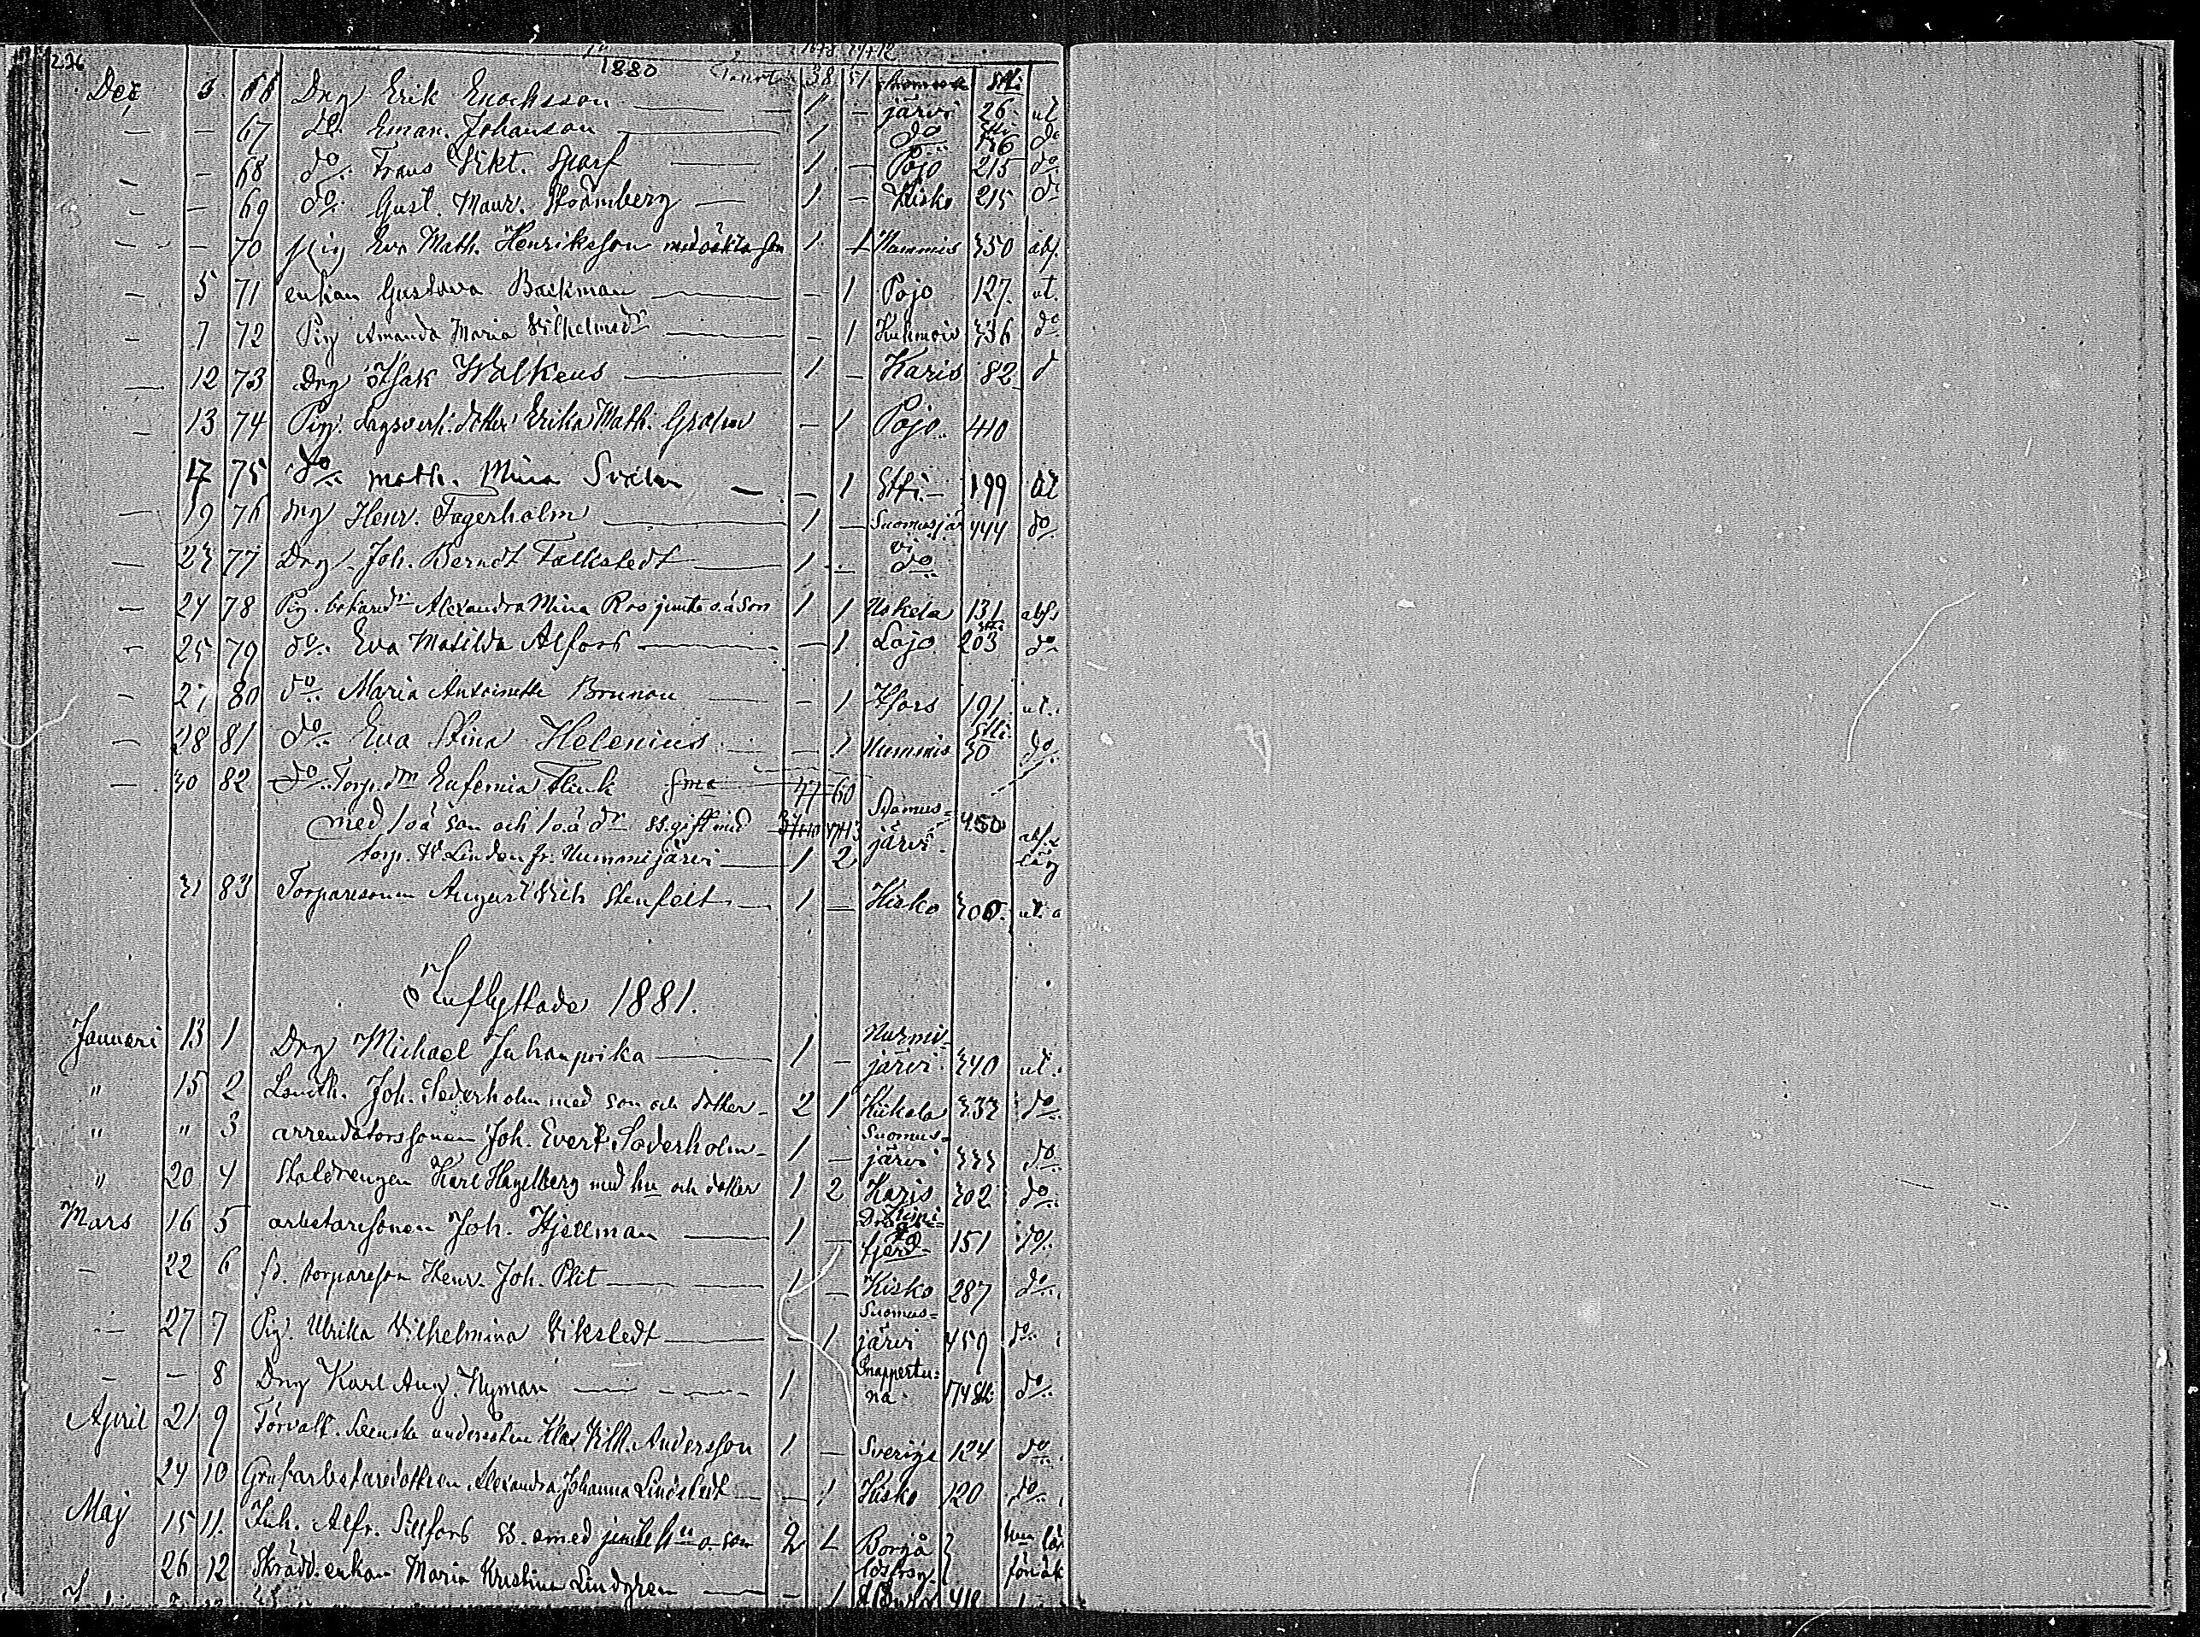 226 1880
Dec 3 66 Drg Erik Enochsson — 1 — järvi 26 ut
— — 67 do. Eman. Johanson — 1 do 136 do
— — 68 do. Frans Vikt. Skarf — 1 — Pojo 215 do
— — 69 do. Gust. Maur. Strömberg — 1 — Kisko 215 do
— — 70 pig Eva Math. Henriksson med oäkta son 1 1 Nummis 350 abs.
— 5 71 enkan Gustava Backman — — 1 Pojo 127 ut.
— 7 72 Pig Amanda Maria Vilhelmsdr — — 1 Kuhmois 336 do
— 12 73 Drg Isak Walkeus — 1 — Karis 82 d
— 13 74 Pig. dagsverk. dotter Erika Math. — 1 Pojo 410
17 75 do. Math. Mina — — 1 199 ut
— 19 76 drg Henr. Fagerholm — 1 — Suomusjär 444 do
vi
— 23 77 Drg. Joh. Berndt Falkstedt — 1 — do
— 24 78 Pig. Alexandra Mina Ros jemte o.ä son 1 1 Uskela 131 abs
— 25 79 do. Eva Matilda Alfors — — 1 Lojo 203 do
— 27 80 do. Maria Antoinette Brunou — — 1 Hfors 191 ut.
— 28 81 do. Eva Stina Helenius — — 1 Nummis 30 do
— 30 82 do. Torp. dr Eufemia Flink Sma 47 60 Suomus=
med 1 oä son och 1 o.ä dr ss. gift med järvi 450
torp. Linden fr. Nummijärvi — 1 2
31 83 Torparesonen August Vilh Stenfelt — 1 — Kisko 306 ut
Inflyttade 1881.
Januari 13 1 Drg Michael — 1 — Nurmis-
järvi 340 ut.
" 15 2 Landb. Joh. Söderholm med son och dotter — 2 1 Kiikala 337 do
" " 3 arrendatorssonen Joh. Evert Söderholm — 1 — Suomus=
järvi 333 do
" 20 4 Staldrengen Karl Hagelberg med hu och dotter 1 2 Karis 302 do
Mars 16 5 arbetaresonen Joh. Kjellman — 1 —
fjerd 151 do.
— 22 6 fd. torpareson Henr. Joh. Plit — 1 — Kisko 287 do.
— 27 7 Pig. Ulrika Vilhelmina Vikstedt — — 1 Suomus=
järvi 459 do
— — 8 Drg Karl Aug. Nyman — 1 Snappertu=
na 174 do.
April 21 9 Förvalt. Svenske undersåten Klas Vilh. Andersson 1 — Sverige 124 do
24 10 Grufarbetaredottren Alexandra Johanna Lindstedt — — 1 Kisko 120 do
Maj 15 11. Inh. Alfr. Sillfors ss. smed jemte hu o. son 2 1 Borgå
26 12 Skrädd. enkan Maria Kristina Lindgren — — 1